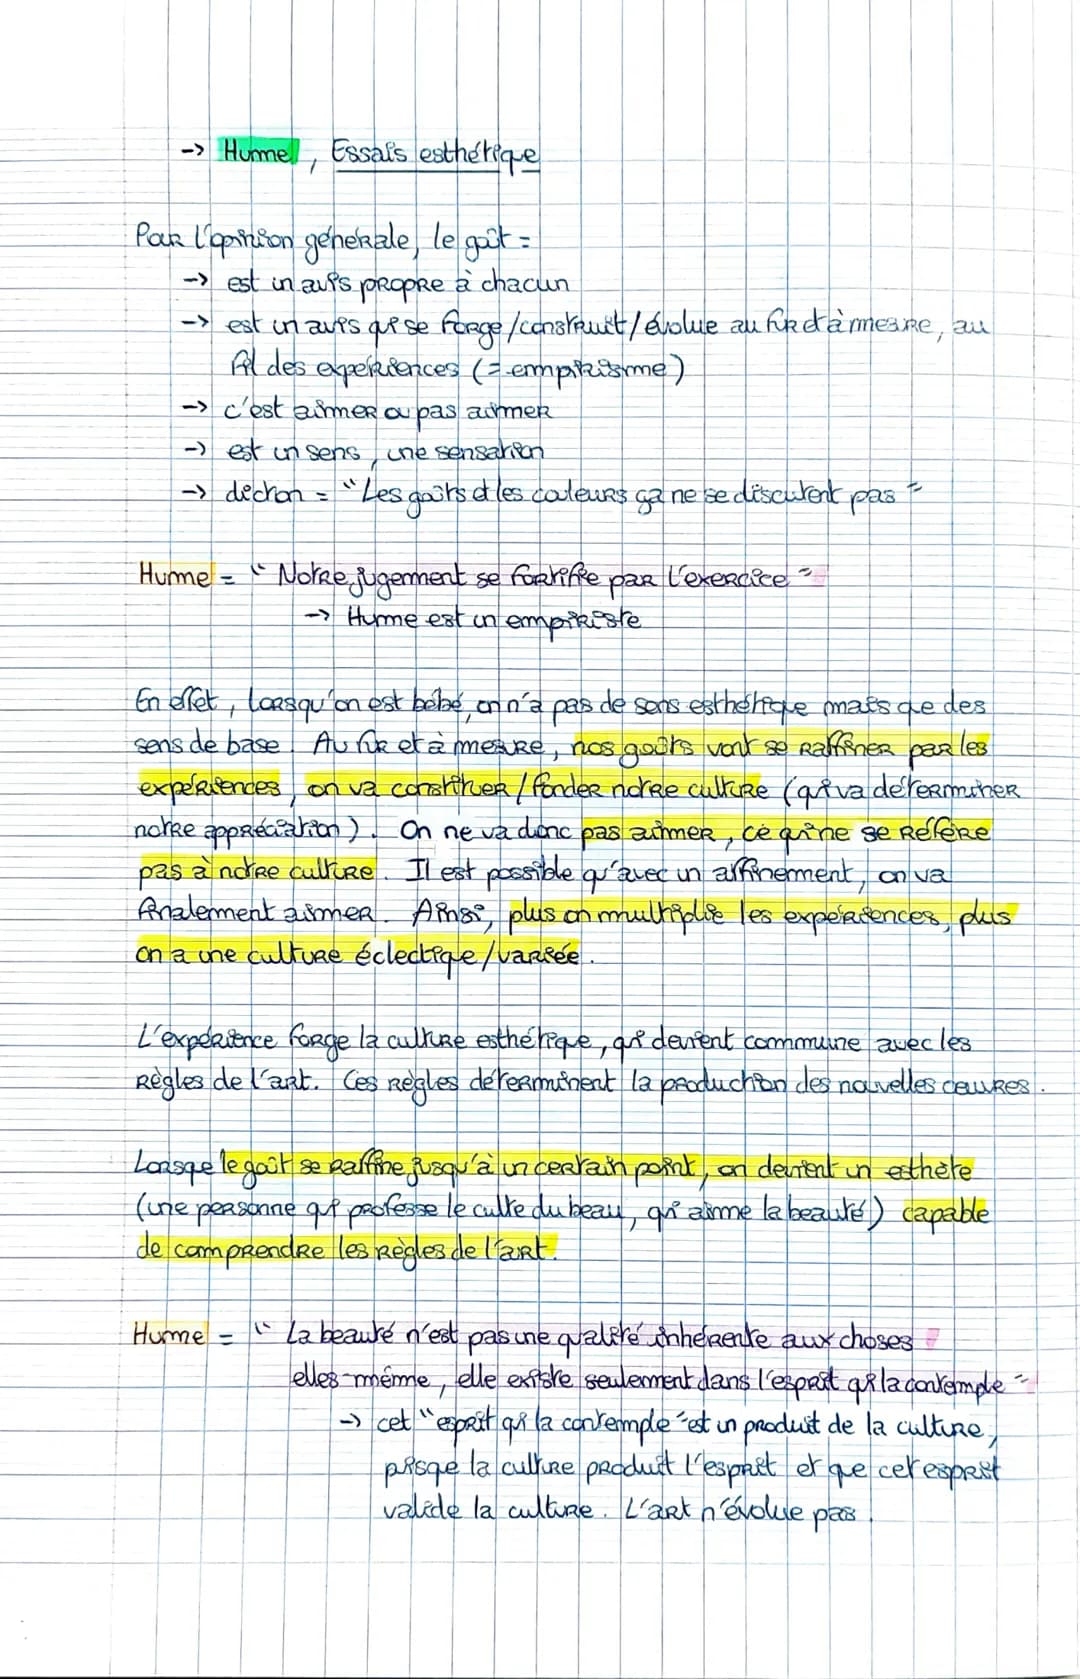 -> Hume, Essais esthétique
Pour l'opinion générale, le goût =
-> est un avis propre à chacun
-> est un avis qui se forge/construit/évolue au fur et à mesure, au
fil des expériences (= empirisme)
-> c'est aimer ou pas aimer
-> est un sens, une sensation
-> dicton = "Les goûts et les couleurs ça ne se discutent pas"
Hume = "Notre jugement se fortifie par l'exercice"
-> Hume est un empiriste
En effet, lorsqu'on est bébé, on n'a pas de sens esthétique mais que des
sens de base. Au fur et à mesure, nos goûts vont se raffiner par les
expériences, on va constituer/fonder notre culture (qui va déterminer
notre appréciation). On ne va donc pas aimer, ce qui ne se réfère
pas à notre culture. Il est possible qu'avec un affinement, on va
finalement aimer. Ainsi, plus on multiplie les expériences, plus
on a une culture éclectique/variée.
L'expérience forge la culture esthétique, qui devient commune avec les
règles de l'art. Ces règles déterminent la production des nouvelles œuvres.
Lorsque le goût se raffine jusqu'à un certain point, on devient un esthète
(une personne qui professe le culte du beau, qui aime la beauté) capable
de comprendre les règles de l'art.
Hume = "La beauté n'est pas une qualité inhérente aux choses
elles-même, elle existe seulement dans l'esprit qui la contemple"
-> cet "esprit qui la contemple" est un produit de la culture,
puisque la culture produit l'esprit et que cet esprit
valide la culture. L'art n'évolue pas.